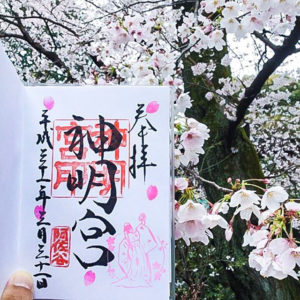 奉拝
神明宮
平成三十一年三月三十一日
阿佐谷